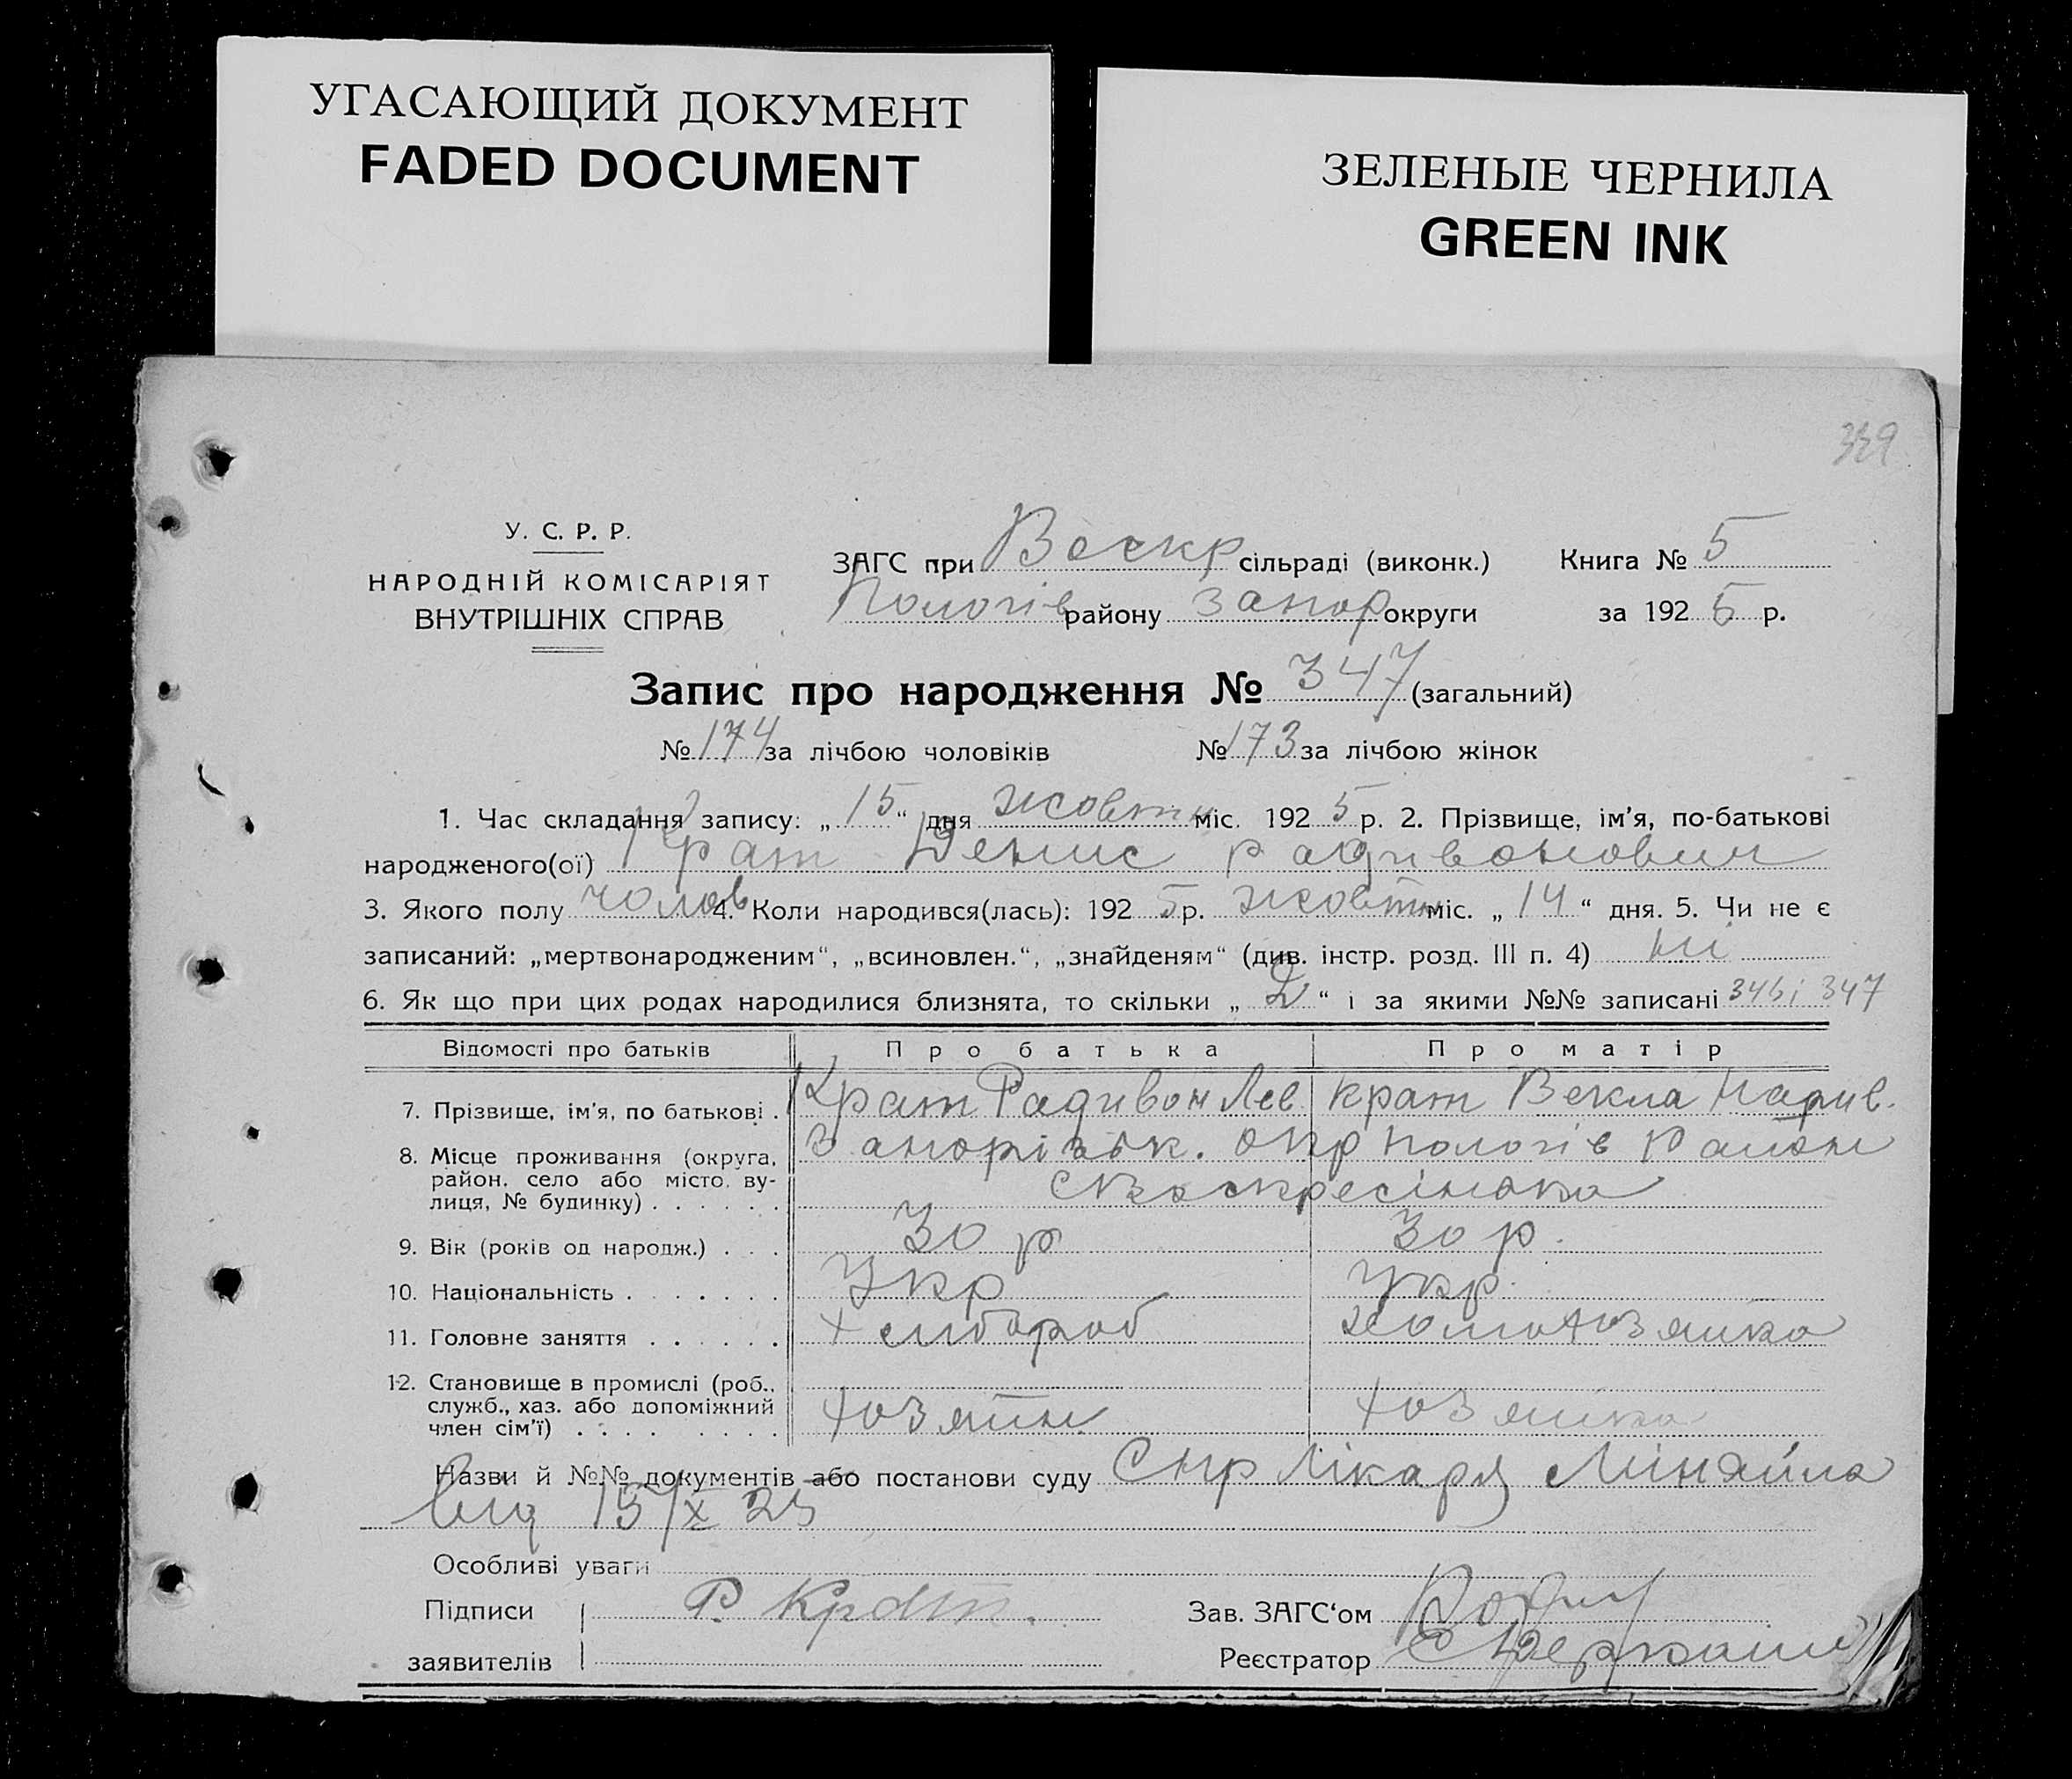 УГАСАЮЩИЙ ДОКУМЕНТ
FADED DOCUMENT
ЗЕЛЕНЫЕ ЧЕРНИЛА
GREEN INK
339
У. С. Р. Р.
НАРОДНІЙ КОМІСАРІЯТ
ВНУТРІШНІХ СПРАВ
ЗАГС при Воскр сільраді (виконк.) Книга № 5
Пологів району Запор округи за 1925 р.
Запис про народження № 347 (загальний)
№ 174 за лічбою чоловіків № 173 за лічбою жінок
1. Час складання запису: „15“ дня жовтн міс. 1925 р. 2. Прізвище, ім'я, по-батькові
народженого(ої) Крат Денис Радивонович
3. Якого полу чолов 4. Коли народився(лась): 1925 р. жовтн міс. „14“ дня. 5. Чи не є
записаний: „мертвонародженим“, „всиновлен.“, „знайденям“ (див. інстр. розд. III п. 4) ні
6. Як що при цих родах народилися близнята, то скільки „2“ і за якими №№ записані 346 і 347
Відомості про батьків Про батька Про матір
7. Прізвище, ім'я, по батькові . Крат Радивон Лев Крат Векла
8. Місце проживання (округа, Запорізьк. окр Пологів район
район, село або місто, ву- с Воскресінька
лиця, № будинку) . . . . . .
9. Вік (років од народж.) . . . 30 р 30 р.
10. Національність . . . . . . . Укр Укр.
11. Головне заняття . . . . . . хлібороб домохозяйка
12. Становище в промислі (роб.,
служб., хаз. або допоміжний хозяїн хозяйка
член сім'ї) . . . . . . . .
Назви й №№ документів або постанови суду Спр лікаря Міняйла
від 15/X 25
Особливі уваги
Підписи Р. Крат. Зав. ЗАГС'ом
заявителів Реєстратор